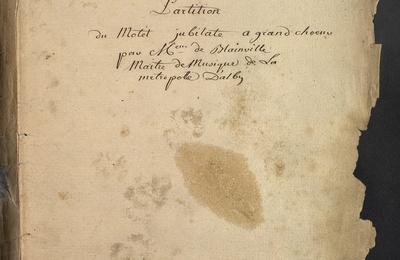 Partition
du Motet jubilate a grand choeur
par M. de Blainville
Maitre de Musique de La
metropole D'alby